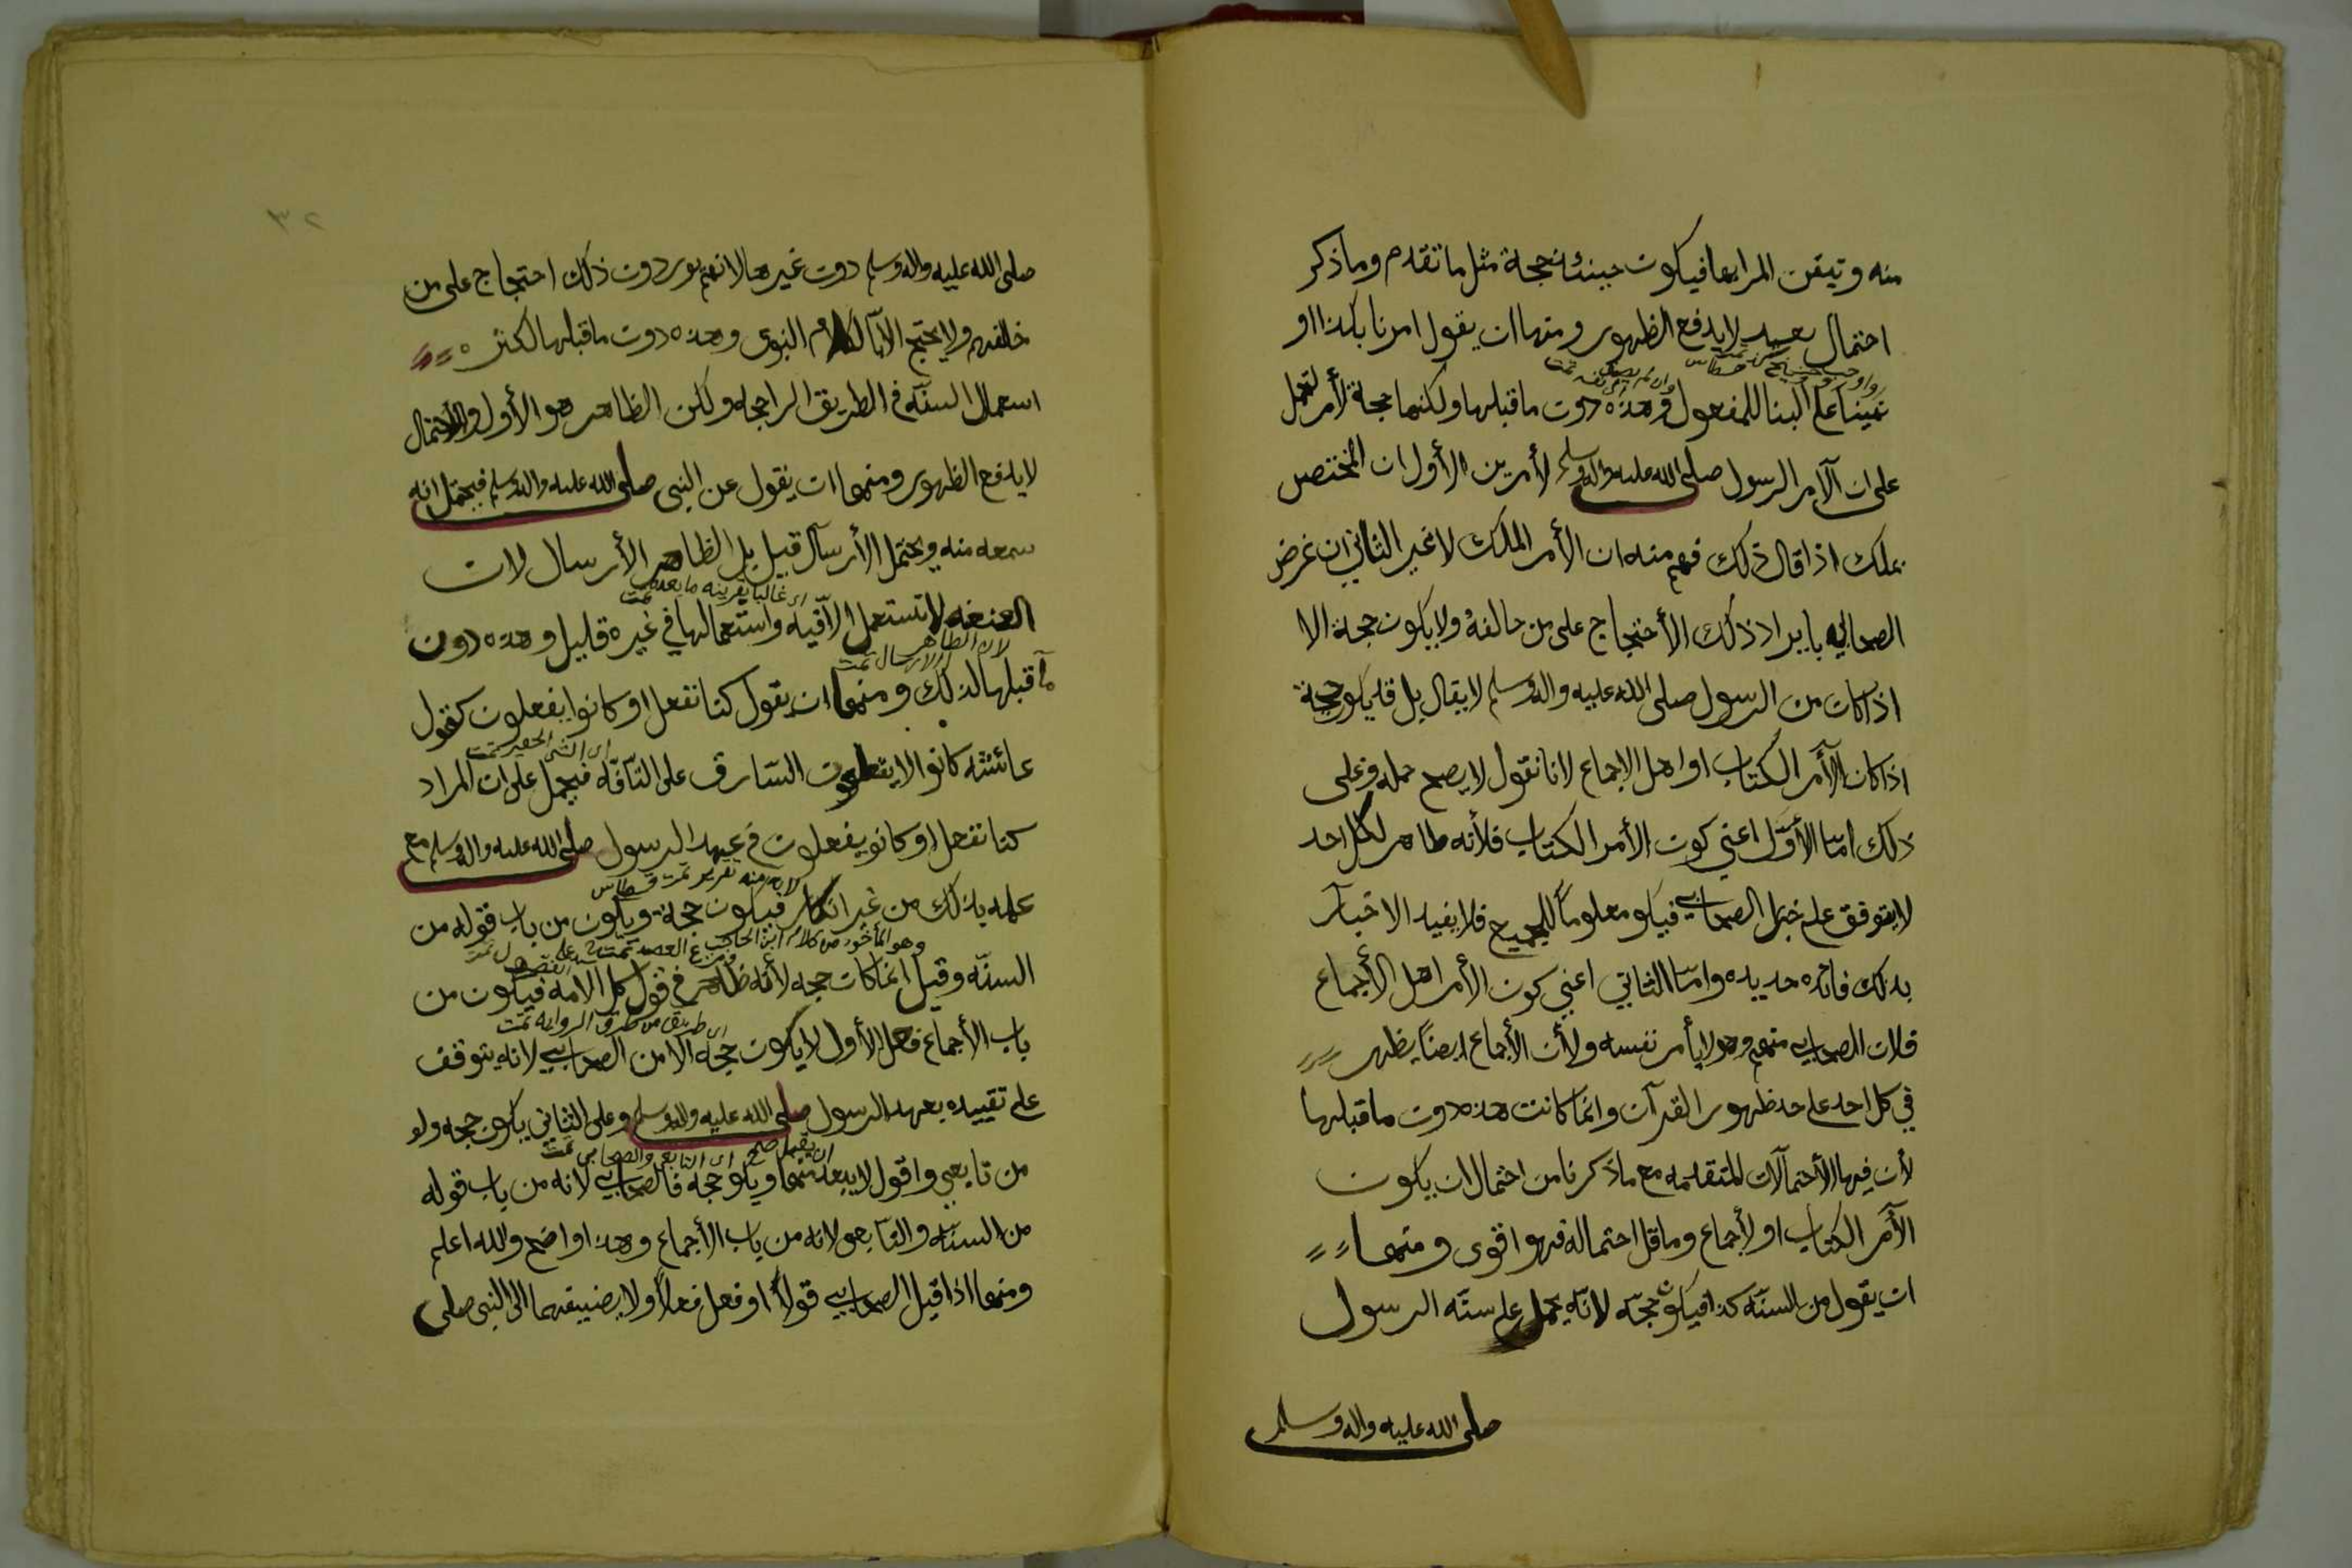 منه وتيقن المراجعا فيكون حينئذ حجة مثل ما تقدم وما ذكر
احتمال بعيد لا يدفع الظهور ومنها ان يقول امرنا بكذا او
نهينا على البنا للمفعول وهذه دون ما قبلها ولكنها حجة لأمر لتحمل
على ان الآمر الرسول صلى الله عليه واله وسلم لأمرين الأول ان المختص
بملك اذا قال ذلك فهم منه ان الأمر الملك لا غير الثاني ان غرض
الصحابي بايراد ذلك الأحتجاج على من خالفه ولا يكون حجة الا
اذا كان من الرسول صلى الله عليه واله وسلم لا يقال بل قد يكون حجة
اذا كان الآمر الكتاب او اهل الاجماع لانا نقول لا يصح حمله على
ذلك امّا الأوّل اعني كون الأمر الكتاب فلأنه ظاهر لكل احد
لا يتوقف على خبر الصحابي فيكو معلوماً للجميع فلا يفيد الاخبار
بذلك فائده جديده وامّا الثاني اعني كون الأمر اهل الأجماع
فلان الصحابي منهم وهو لا يأمر نفسه ولأن الأجماع ايضاً يظهر
في كل احد على حد ظهور القرآن وانما كانت هذه دون ما قبلها
لأن فيها الأحتمالات المتقدمه مع ما ذكرنا من احتمال ان يكون
الآمر الكتاب او لأجماع وما قل احتماله فهو اقوى ومنها
ان يقول من السنّه كذا فيكون حجّه لانّه يحمل على سنّه الرسول
صلى الله عليه واله وسلم
٣٢
صلى الله عليه واله وسلم دون غيرها لانهم يوردون ذلك احتجاج على من
خالفهم ولا يحتج الا بالكلام النبوي وهذه دون ما قبلها لكثر ه
استعمال السنّه في الطريق الراجحه ولكن الظاهر هو الأول والأحتمال
لا يدفع الظهور ومنها ان يقول عن النبي صلى الله عليه واله وسلم فيحتمل انه
سمعه منه ويحتمل الأرسال قيل بل الظاهر الأرسال لان
اي غالبا بقرينه ما بعده تمت
العنعنه لا تستعمل الا فيه واستعمالها في غيره قليل وهذه دون
لان الظاهر الارسال تمت
ما قبلها لذلك ومنها ان يقول كنا نفعل او كانوا يفعلون كقول
اي الشي الحقير تمت
عائشه كانوا لا يقطعون السّارق على التّافّه فيحمل على ان المراد
كنا نفعل او كانو يفعلون في عهد الرسول صلى الله عليه واله وسلم مع
لانه منه تقرير تمت قسطاس
علمه بذلك من غير انكار فيكون حجة ويكون من باب قوله من
وهو المأخوذ من كلام ابن الحاجب
السنّه وقيل انما كان حجه لأنه ظاهر في قول كل الامه فيكون من
اي طريق من طرق الروايه تمت
باب الأجماع فعلى الأول لا يكون حجه الا من الصحابي لانه يتوقف
على تقييده بعهد الرسول صلى الله عليه واله وسلم وعلى الثاني يكون حجه ولو
ان يقبل صح اي التابعي والصحابي تمت
من تابعي واقول لا يبعد منهما ويكو حجه فالصحابي لانه من باب قوله
من السنّه والتابعي لانه من باب الأجماع وهذا واضح والله اعلم
ومنها اذا قيل الصحابي قولاً او فعل فعلاً ولا يضيفهما الى النبي صلى